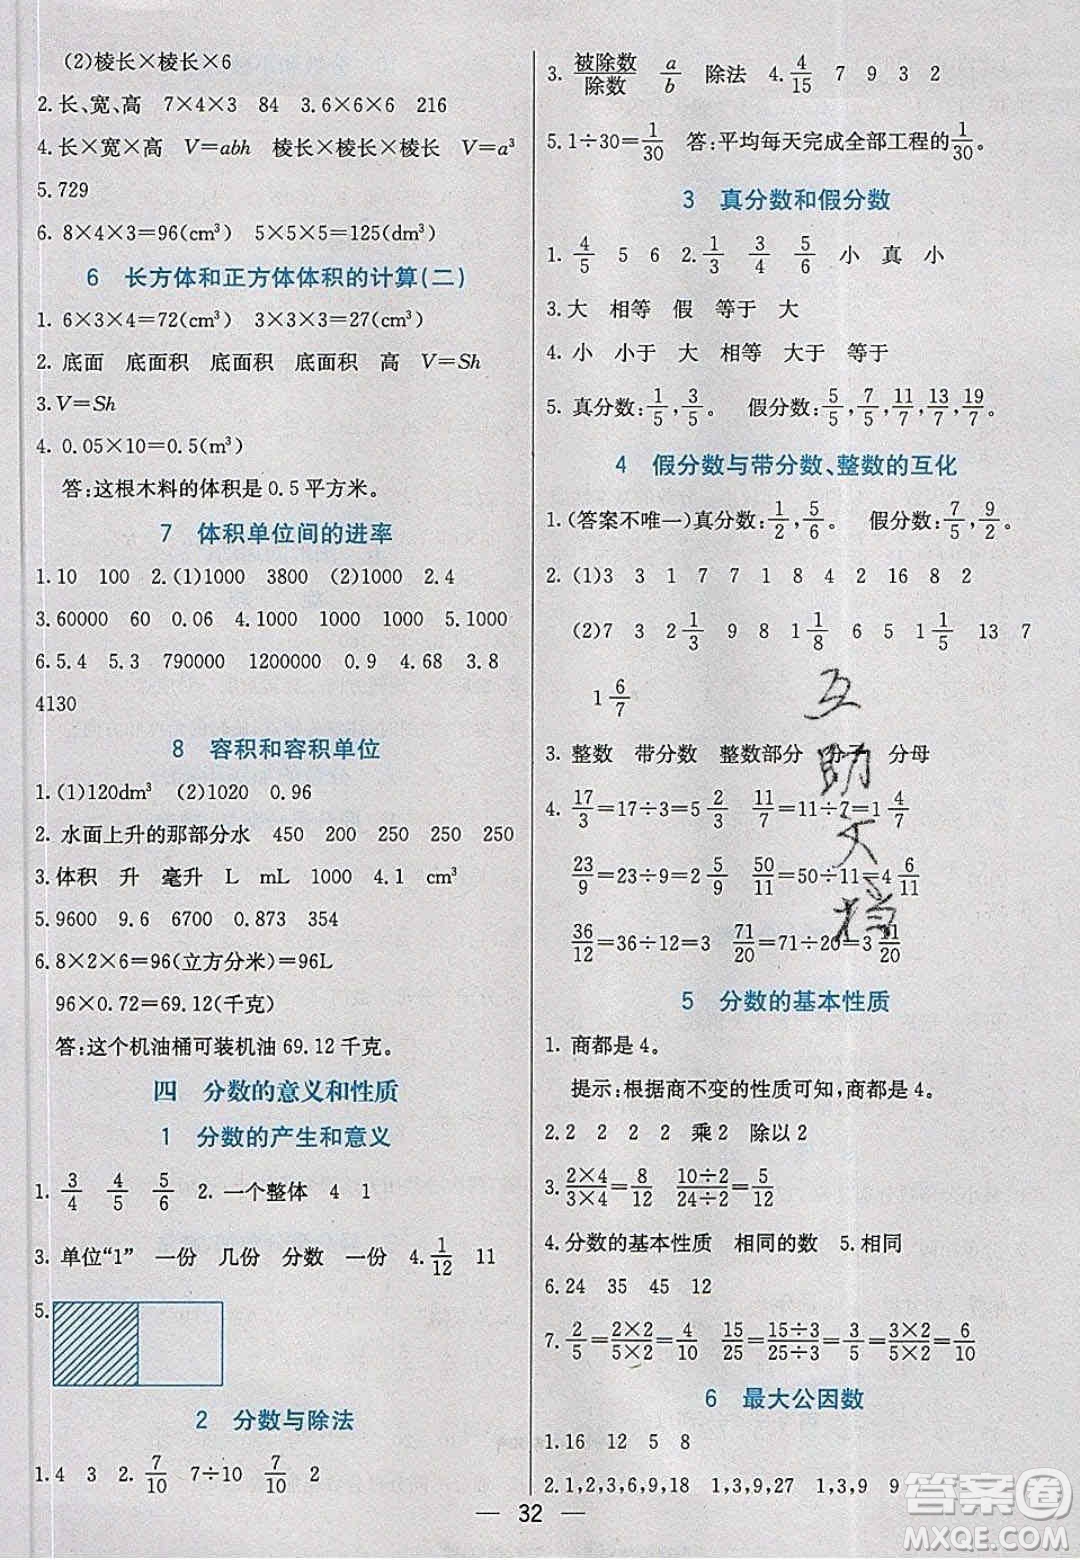 (2)棱长×棱长×6
2.长、宽、高 7×4×3 84 3.6×6×6 216
4.长×宽×高 V=abh 棱长×棱长×棱长 V=a³
5.729
6. 8×4×3=96(cm³) 5×5×5=125(dm³)
6 长方体和正方体体积的计算(二)
1. 6×3×4=72(cm³) 3×3×3=27(cm³)
2. 底面 底面积 底面积 底面积 高 V=Sh
3.V=Sh
4. 0.05×10=0.5(m³)
答:这根木料的体积是0.5平方米。
7 体积单位间的进率
1.10 100 2.(1)1000 3800 (2)1000 2.4
3.60000 60 0.06 4.1000 1000 1000 5.1000
6.5.4 5.3 790000 1200000 0.9 4.68 3.8
4130
8 容积和容积单位
1. (1)120dm³ (2)1020 0.96
2. 水面上升的那部分水 450 200 250 250 250
3.体积 升 毫升 L mL 1000 4.1 cm³
5.9600 9.6 6700 0.873 354
6.8×2×6=96(立方分米)=96L
96×0.72=69.12(千克)
答:这个机油桶可装机油69.12千克。
四 分数的意义和性质
1 分数的产生和意义
1. 3/4 4/5 5/6 2. 一个整体 4 1
3. 单位“1” 一份 几份 分数 一份 4. 1/12 11
5.
2 分数与除法
1.4 3 2. 7/10 7÷10 7/10 2
3. 被除数/除数 a/b 除法 4. 4/15 7 9 3 2
5.1÷30=1/30 答:平均每天完成全部工程的1/30。
3 真分数和假分数
1. 4/5 5 6 2. 1/3 3/4 5/6 小 真 小
3.大 相等 假 等于 大
4. 小 小于 大 相等 大于 等于
5. 真分数:1/5,3/5。 假分数:5/5,7/5,11/7,13/7,19/7。
4 假分数与带分数、整数的互化
1.(答案不唯一)真分数:1/2,5/6。 假分数:7/5,9/2。
2. (1)3 3 1 7 7 1 8 4 2 16 8 2
(2)7 3 2 1/3 9 8 1 1/8 6 5 1 1/5 13 7
1 6/7
3. 整数 带分数 整数部分 分子 分母
4. 17/3=17÷3=5 2/3 11/7=11÷7=1 4/7
23/9=23÷9=2 5/9 50/11=50÷11=4 6/11
36/12=36÷12=3 71/20=71÷20=3 11/20
互助文档
5 分数的基本性质
1. 商都是4。
提示:根据商不变的性质可知,商都是4。
2.2 2 2 2 乘2 除以2
3. 2×4/3×4=8/12 10÷2/24÷2=5/12
4.分数的基本性质 相同的数 5.相同
6.24 35 45 12
7. 2/5=2×2/5×2=4/10 15/25=15÷3/25÷5=3/5=3×2/5×2=6/10
6 最大公因数
1.16 12 5 8
2.1,2,3,6,9,18 1,3,9,27 1,3,9 9
32
答案圈
MXQE.COM